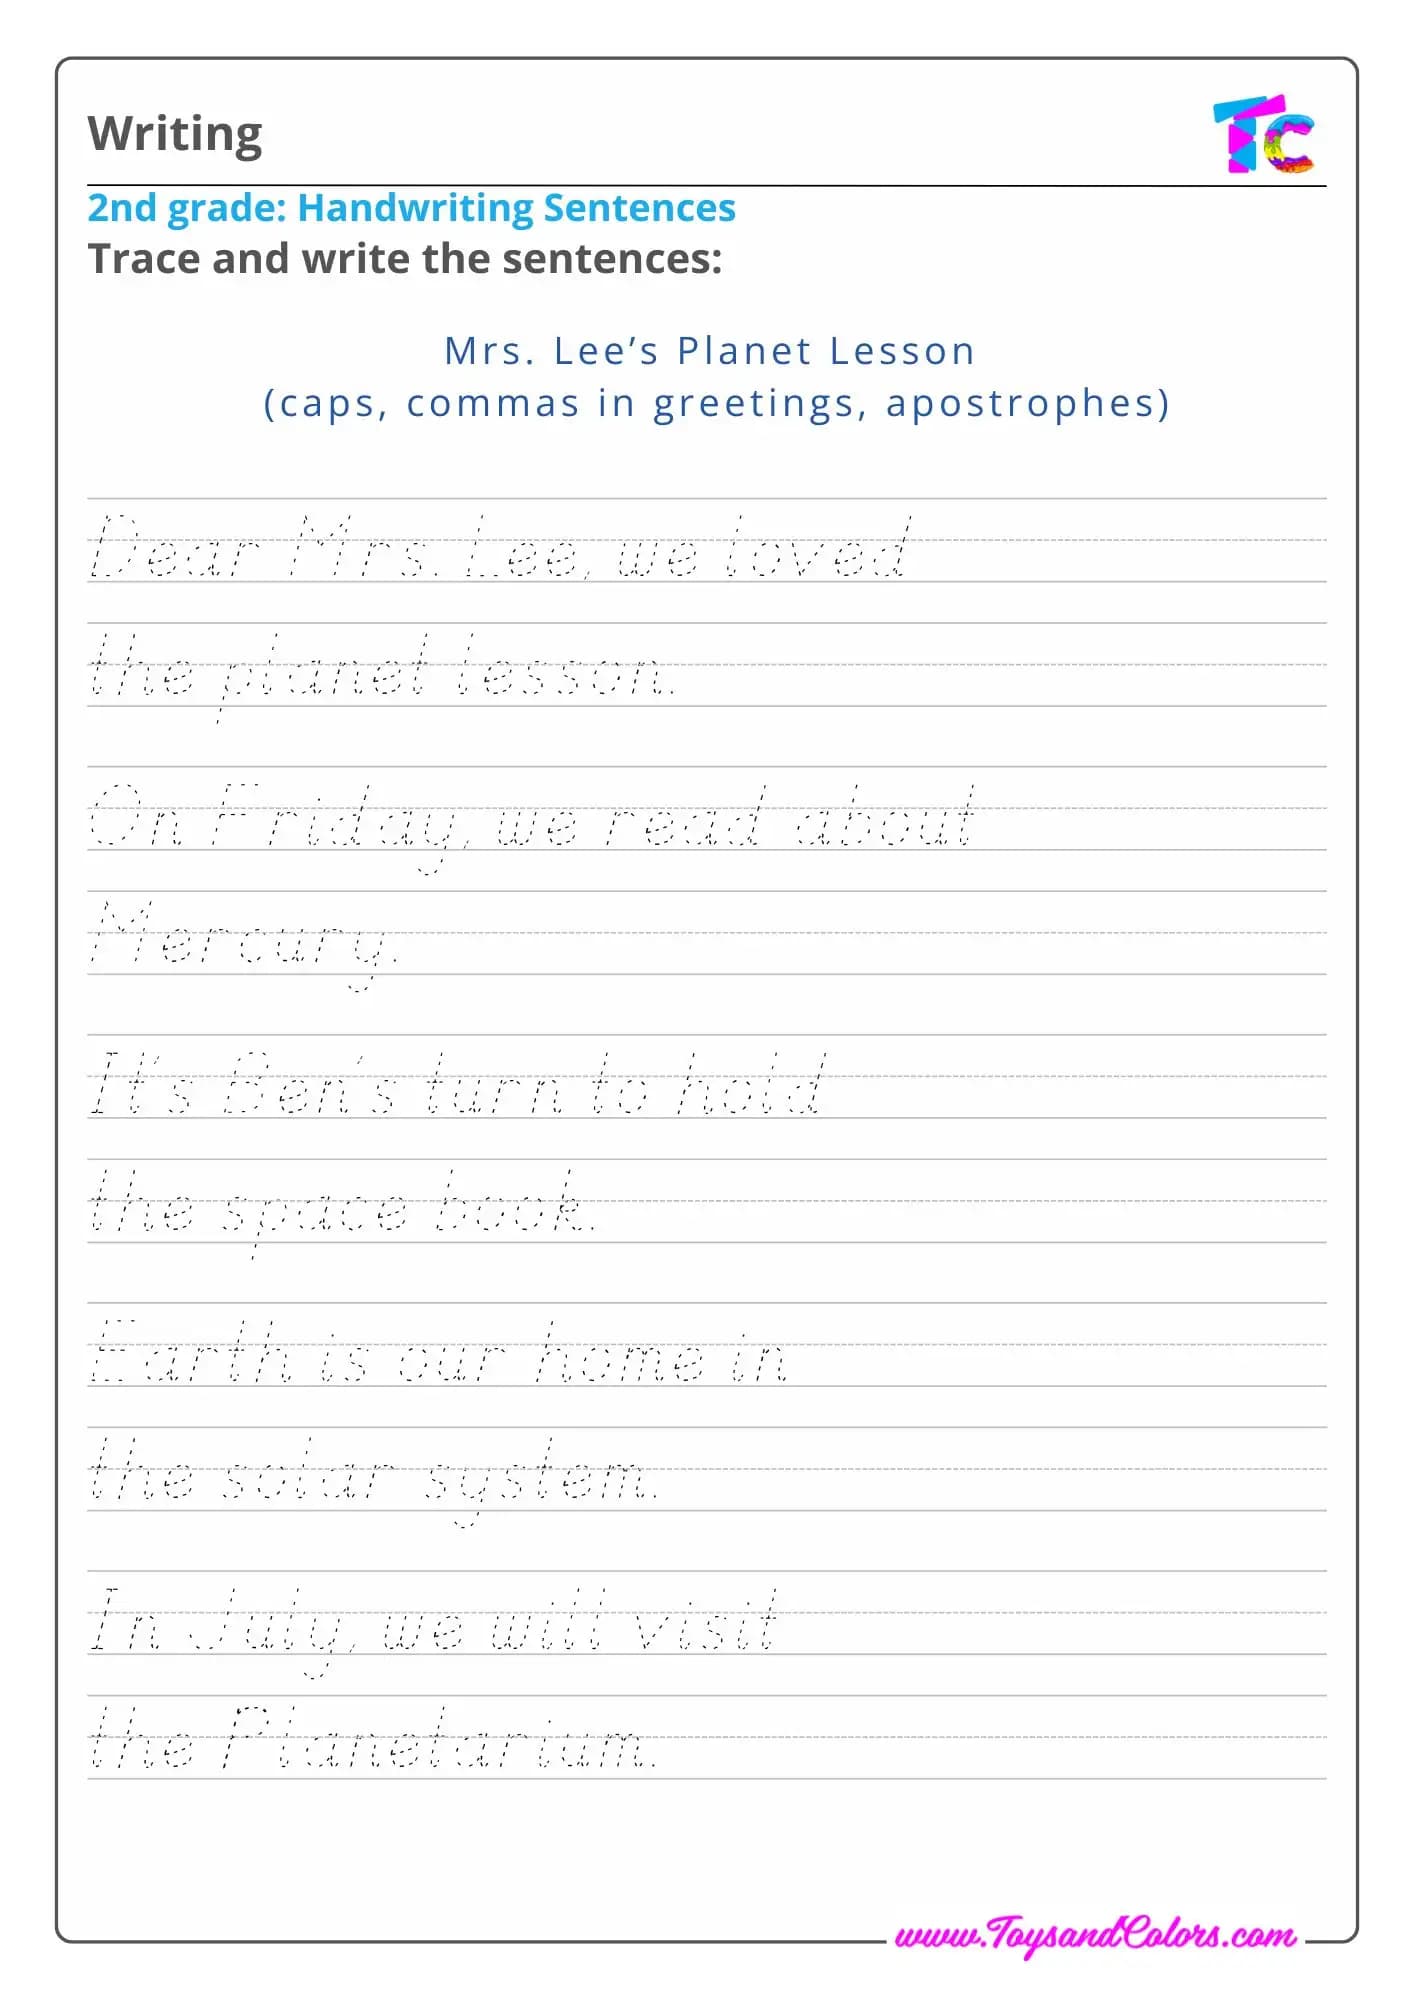 Writing
Tc
2nd grade: Handwriting Sentences
Trace and write the sentences:
Mrs. Lee’s Planet Lesson
(caps, commas in greetings, apostrophes)
Dear Mrs. Lee, we loved
the planet lesson.
On Friday, we read about
Mercury.
It's Ben's turn to hold
the space book.
Earth is our home in
the solar system.
In July, we will visit
the Planetarium.
www.ToysandColors.com